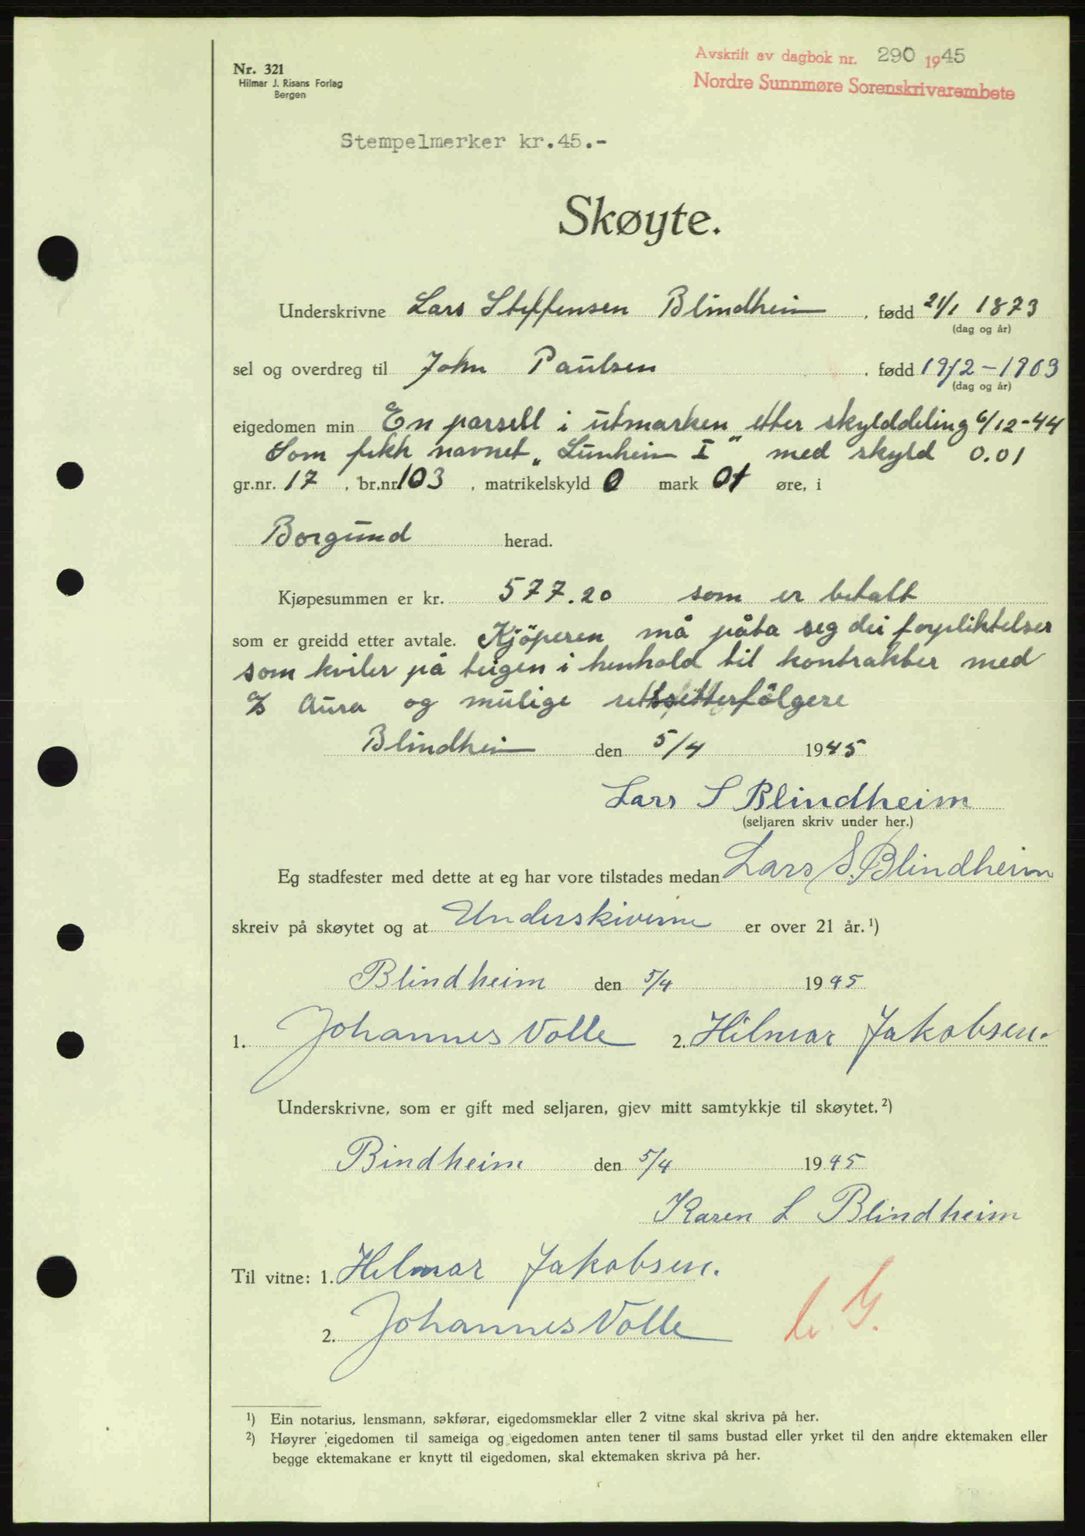 Nr. 321
Hilmar J. Risans Forlag
Bergen
Avskrift av dagbok nr. 290 1945
Nordre Sunnmøre Sorenskrivarembete
Stempelmerker kr.45.-
Skøyte.
Underskrivne Lars Steffensen Blindheim, fødd 21/1 1873
(dag og år)
sel og overdreg til John Paulsen, fødd 19/2-1903
(dag og år)
eigedomen min En parsell i utmarken etter skylddeling 6/12-44
Som fikk navnet „Lunheim I" med skyld 0.01
gr.nr. 17, br.nr. 103, matrikelskyld 0 mark 01 øre, i
Borgund herad.
Kjøpesummen er kr. 577.20 som er betalt
som er greidd etter avtale. Kjöperen må påta seg dei forpliktelser
som kviler på teigen i henhold til kontrakter med
Aura og mulige rettsetterfölgere
Blindheim den 5/4 1945
Lars S Blindheim
(seljaren skriv under her.)
Eg stadfester med dette at eg har vore tilstades medan Lars S. Blindheim
skreiv på skøytet og at Underskiverne er over 21 år.¹)
Blindheim den 5/4 1945
1. Johannes Volle 2. Hilmar Jakobsen.
Underskrivne, som er gift med seljaren, gjev mitt samtykkje til skøytet.²)
Bindheim den 5/4 1945
Karen L Blindheim
Til vitne: 1. Hilmar Jakobsen.
2. Johannes Volle
¹) Ein notarius, lensmann, sakførar, eigedomsmeklar eller 2 vitne skal skriva på her.
²) Høyrer eigedomen til sameiga og eigedomen anten tener til sams bustad eller yrket til den andre ektemaken eller
begge ektemakane er knytt til eigedomen, skal ektemaken skriva på her.